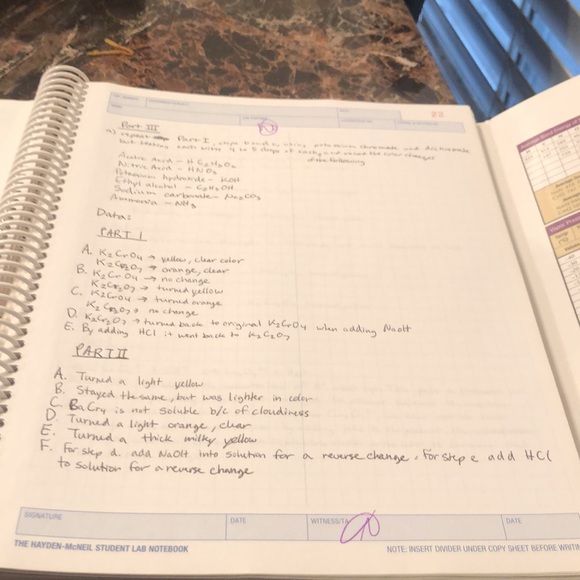 22
Part III
a) repeat Part I, steps using potassium chromate and dichromate
but testing each with 4 to 5 drops of each, and record the color changes
of the following
Acetic Acid - HC2H3O2
Nitric Acid - HNO3
Potassium hydroxide - KOH
Ethyl alcohol - C2H5OH
Sodium carbonate - Na2CO3
Ammonia - NH3
Data:
PART I
A. K2CrO4 → yellow, clear color
K2Cr2O7 → orange, clear
B. K2CrO4 → no change
K2Cr2O7 → turned yellow
C. K2CrO4 → turned orange
K2Cr2O7 → no change
D. K2Cr2O7 → turned back to original K2CrO4 when adding NaOH
E. By adding HCl it went back to K2C2O7
PART II
A. Turned a light yellow
B. Stayed the same, but was lighter in color
C. BaCry is not soluble b/c of cloudiness
D. Turned a light orange, clear
E. Turned a thick milky yellow
F. For step d. add NaOH into solution for a reverse change. For step e add HCl
to solution for a reverse change
SIGNATURE
DATE
WITNESS/TA
DATE
THE HAYDEN-McNEIL STUDENT LAB NOTEBOOK
NOTE: INSERT DIVIDER UNDER COPY SHEET BEFORE WRITIN